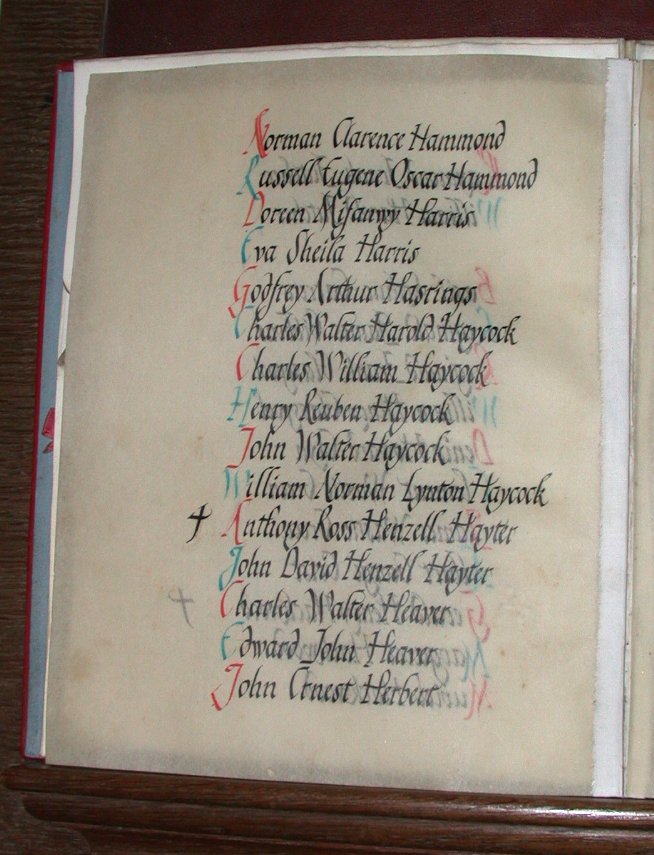 Norman Clarence Hammond
Russell Eugene Oscar Hammond
Doreen Mifanwy Harris
Eva Sheila Harris
Godfrey Arthur Hastings
Charles Walter Harold Haycock
Charles William Haycock
Henry Reuben Haycock
John Walter Haycock
William Norman Lynton Haycock
✝ Anthony Ross Henzell Hayter
John David Henzell Hayter
Charles Walter Heaver
Edward John Heaver
John Ernest Herbert